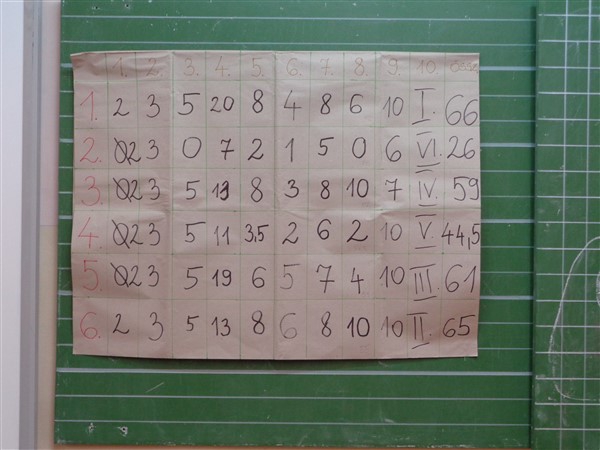 1. 2. 3. 4. 5. 6. 7. 8. 9. 10. össz
1. 2 3 5 20 8 4 8 6 10 I. 66
2. 0 2 3 0 7 2 1 5 0 6 VI. 26
3. 0 2 3 5 13 8 3 8 10 7 IV. 59
4. 0 2 3 5 11 3,5 2 6 2 10 V. 44,5
5. 0 2 3 5 19 6 5 7 4 10 III. 61
6. 2 3 5 13 8 6 8 10 10 II. 65